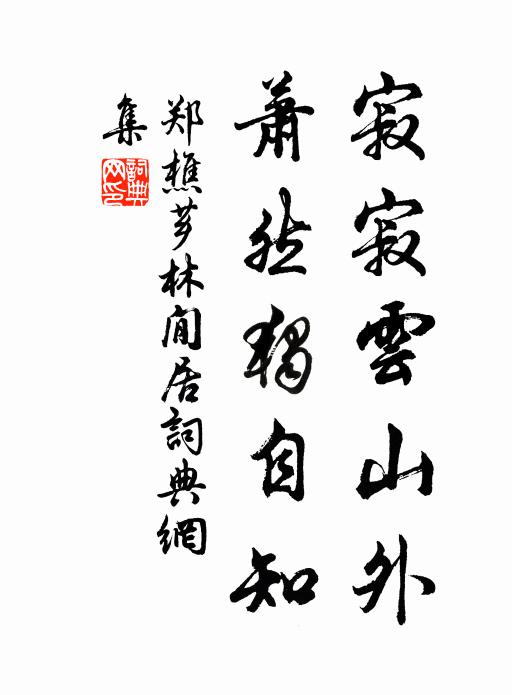 寂寂雲山外
蕭然獨自知
郑樵芗林閒居詞典網
集
詞典
网印